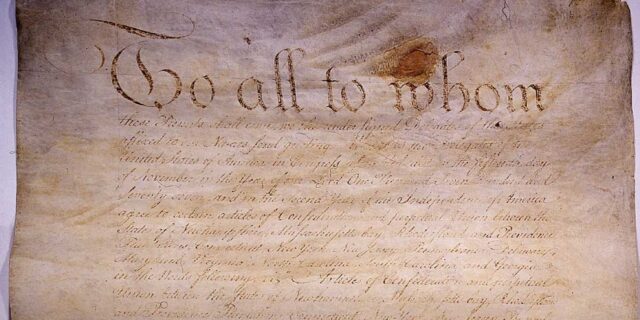 To all to whom
these Presents shall come, we the under signed Delegates of the States
affixed to our Names send greeting. Whereas the Delegates of the
United States of America in Congress assembled did on the fifteenth day
of November in the Year of our Lord One Thousand Seven Hundred and
Seventy seven, and in the Second Year of the Independence of America
agree to certain articles of Confederation and perpetual Union between the
States of Newhampshire, Massachusetts-bay, Rhodeisland and Providence
Plantations, Connecticut, New York, New Jersey, Pennsylvania, Delaware,
Maryland, Virginia, North-Carolina, South-Carolina and Georgia
in the Words following, viz. "Articles of Confederation and perpetual
Union between the States of Newhampshire, Massachusetts-bay, Rhodeisland
and Providence Plantations, Connecticut, New York, New Jersey,